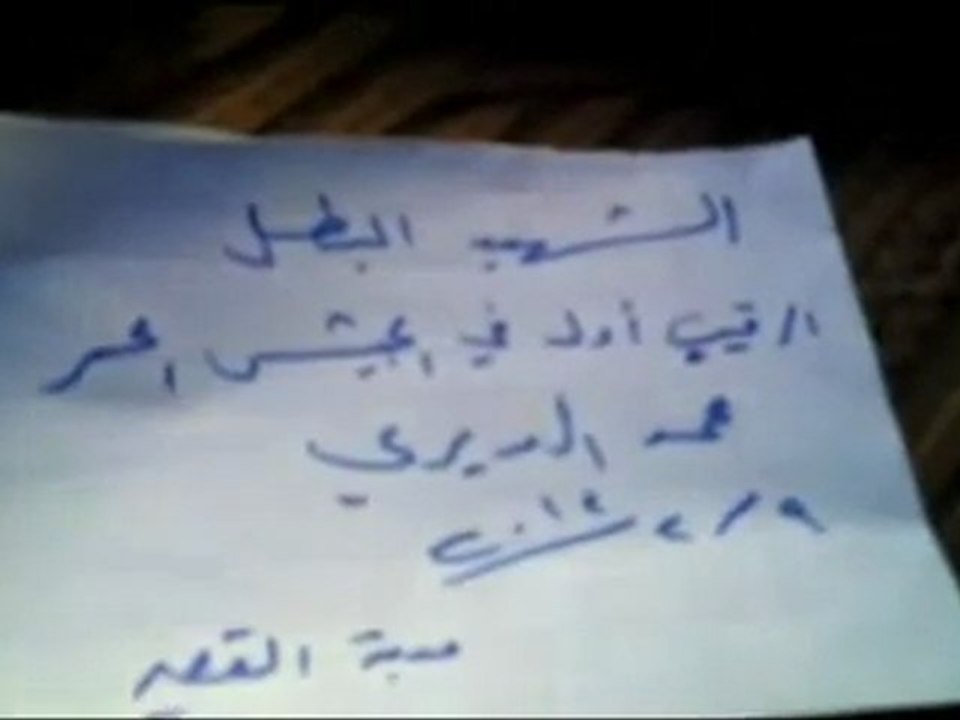 الشهيد البطل
الرقيب أول في الجيش الحر
محمد الديري
٩ / ٢ / ٢٠١٢
القصير